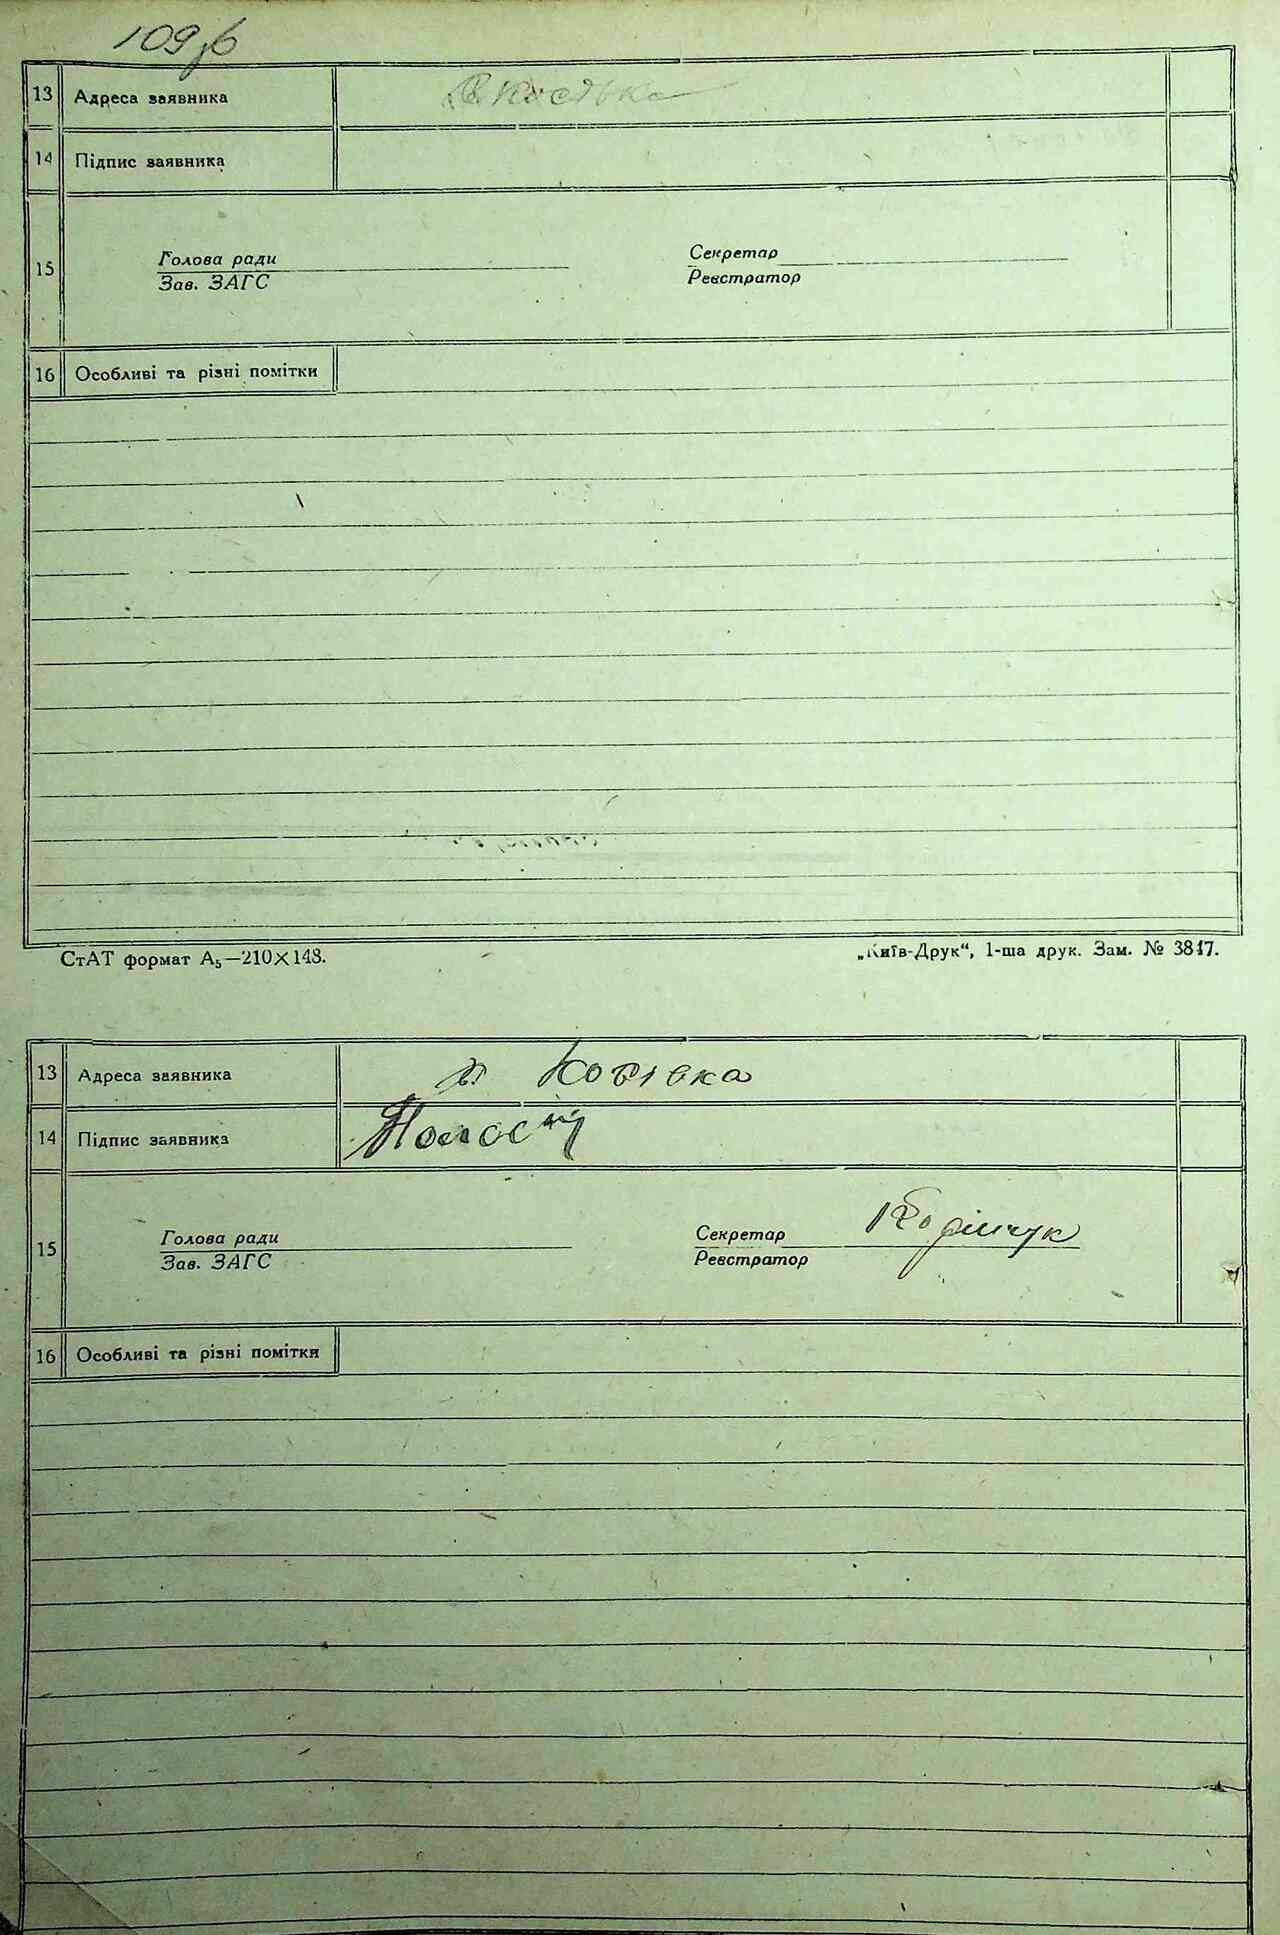 109
13 Адреса заявника
14 Підпис заявника
15 Голова ради Секретар
Зав. ЗАГС Реєстратор
16 Особливі та різні помітки
СтАТ формат А₅—210×148. „Київ-Друк“, 1-ша друк. Зам. № 3847.
13 Адреса заявника
14 Підпис заявника
15 Голова ради Секретар
Зав. ЗАГС Реєстратор
16 Особливі та різні помітки